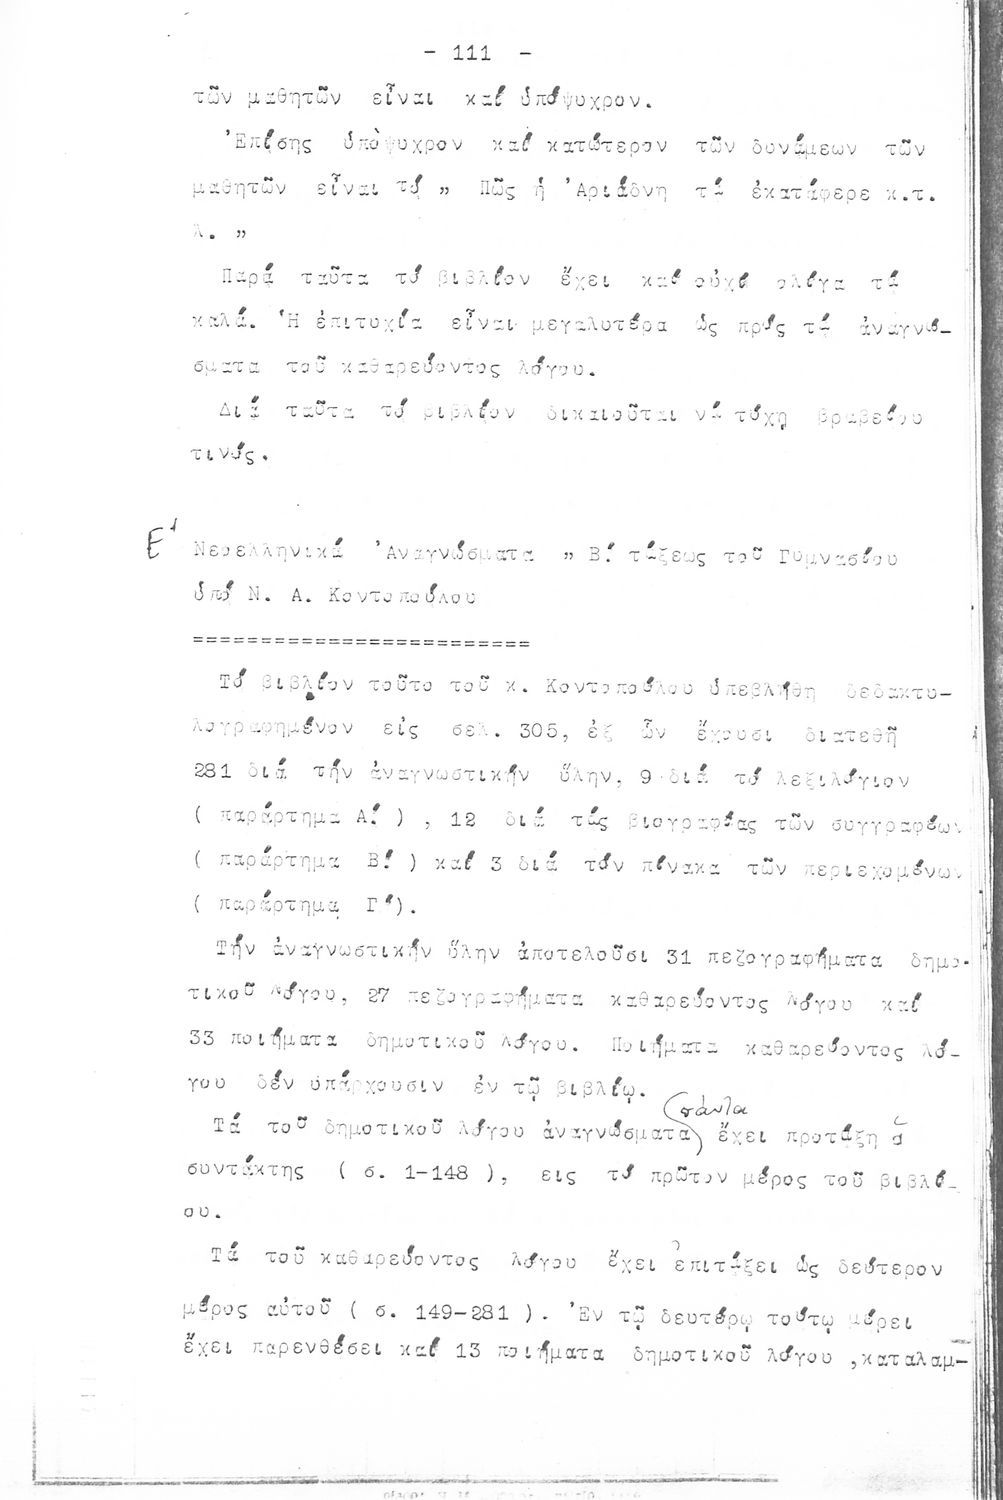 - 111 -
τῶν μαθητῶν εἶναι καί ὑπόψυχρον.
Ἐπίσης ὑπόψυχρον καί κατώτερον τῶν δυνάμεων τῶν
μαθητῶν εἶναι τό „ Πῶς ἡ Ἀριάδνη τά ἐκατάφερε κ.τ.
λ. „
Παρά ταῦτα τό βιβλίον ἔχει καί οὐχί ολίγα τά
καλά. Ἡ ἐπιτυχία εἶναι μεγαλυτέρα ὡς πρός τά ἀναγνώ-
σματα τοῦ καθαρεύοντος λόγου.
Διά ταῦτα τό βιβλίον δικαιοῦται νά τύχῃ βραβείου
τινός.
Ε' Νεοελληνικά Ἀναγνώσματα „ Β! τάξεως τοῦ Γυμνασίου
ὑπό Ν. Α. Κοντοπούλου
=========================
Τό βιβλίον τοῦτο τοῦ κ. Κοντοπούλου ὑπεβλήθη δεδακτυ-
λογραφημένον εἰς σελ. 305, ἐξ ὧν ἔχουσι διατεθῆ
281 διά τήν ἀναγνωστικήν ὕλην, 9 διά τό λεξιλόγιον
( παράρτημα Α! ) , 12 διά τάς βιογραφίας τῶν συγγραφέων
( παράρτημα Β! ) καί 3 διά τόν πίνακα τῶν περιεχομένων
( παράρτημα Γ').
Τήν ἀναγνωστικήν ὕλην ἀποτελοῦσι 31 πεζογραφήματα δημο-
τικοῦ λόγου, 27 πεζογραφήματα καθαρεύοντος λόγου καί
33 ποιήματα δημοτικοῦ λόγου. Ποιήματα καθαρεύοντος λό-
γου δέν ὑπάρχουσιν ἐν τῷ βιβλίῳ.
πάντα
Τά τοῦ δημοτικοῦ λόγου ἀναγνώσματα ἔχει προτάξη ὁ
συντάκτης ( σ. 1-148 ), εις τό πρῶτον μέρος τοῦ βιβλί-
ου.
Τά τοῦ καθαρεύοντος λόγου ἔχει ἐπιτάξει ὡς δεύτερον
μέρος αὐτοῦ ( σ. 149-281 ). Ἐν τῷ δευτέρῳ τούτῳ μέρει
ἔχει παρενθέσει καί 13 ποιήματα δημοτικοῦ λόγου ,καταλαμ-